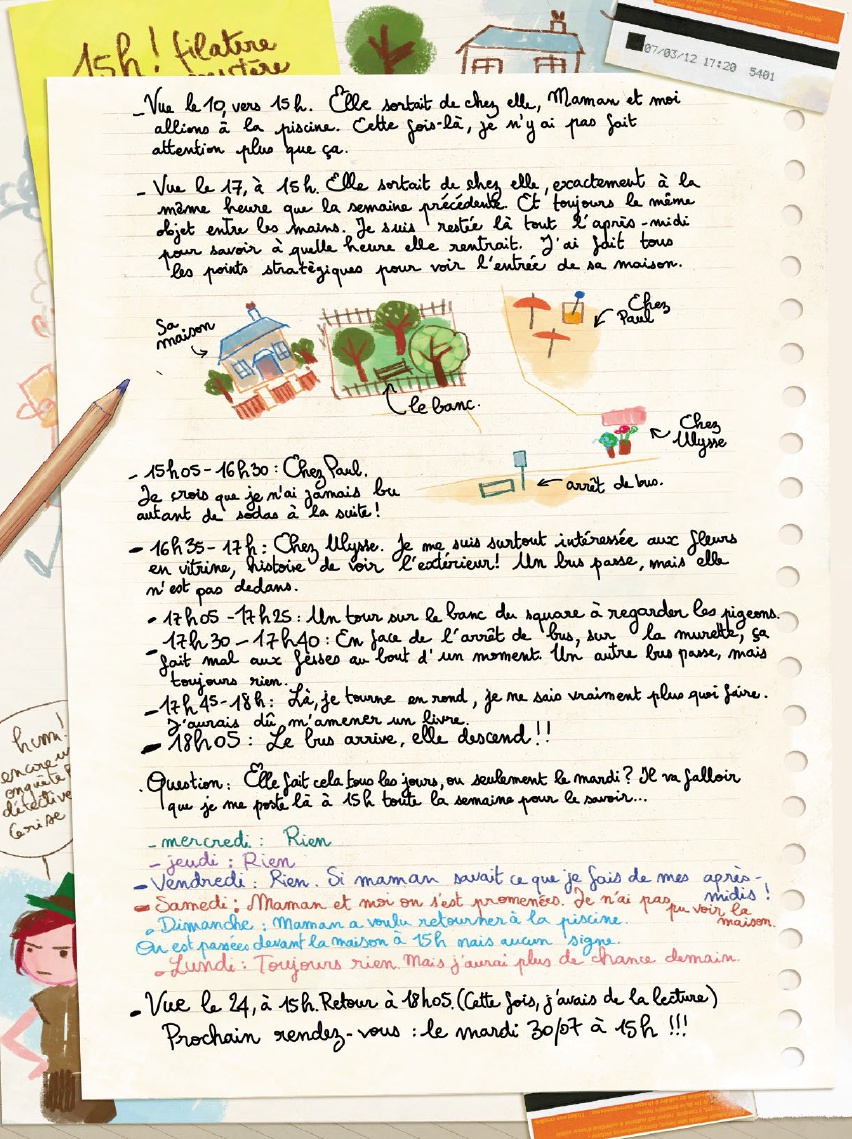 15h! filature
07/03/12 17:20 5401
_Vue le 10, vers 15h. Elle sortait de chez elle, Maman et moi
allions à la piscine. Cette fois-là, je n'y ai pas fait
attention plus que ça.
_ Vue le 17, à 15h. Elle sortait de chez elle, exactement à la
même heure que la semaine précédente. Et toujours le même
objet entre les mains. Je suis restée là tout l'après-midi
pour savoir à quelle heure elle rentrait. J'ai fait tous
les points stratégiques pour voir l'entrée de sa maison.
Sa
maison
le banc.
Chez
Paul
Chez
Ulysse
arrêt de bus.
- 15h05-16h30 : Chez Paul.
Je crois que je n'ai jamais bu
autant de sodas à la suite!
- 16h35-17h : Chez Ulysse. Je me suis surtout intéressée aux fleurs
en vitrine, histoire de voir l'extérieur! Un bus passe, mais elle
n'est pas dedans.
- 17h05-17h25 : Un tour sur le banc du square à regarder les pigeons.
- 17h30-17h40 : En face de l'arrêt de bus, sur la murette, ça
fait mal aux fesses au bout d'un moment. Un autre bus passe, mais
toujours rien.
- 17h45-18h : Là, je tourne en rond, je ne sais vraiment plus quoi faire.
J'aurais dû m'amener un livre.
- 18h05 : Le bus arrive, elle descend!!
. Question : Elle fait cela tous les jours, ou seulement le mardi? Il va falloir
que je me poste là à 15h toute la semaine pour le savoir...
- mercredi : Rien
- jeudi : Rien
- Vendredi : Rien. Si maman savait ce que je fais de mes après-
midis!
- Samedi : Maman et moi on s'est promenées. Je n'ai pas
pu voir la
maison.
. Dimanche : Maman a voulu retourner à la piscine.
On est passées devant la maison à 15h mais aucun signe.
. Lundi : Toujours rien. Mais j'aurai plus de chance demain.
- Vue le 24, à 15h. Retour à 18h05. (Cette fois, j'avais de la lecture)
Prochain rendez-vous : le mardi 30/07 à 15h !!!
hum!
enquête
détective
Cerise